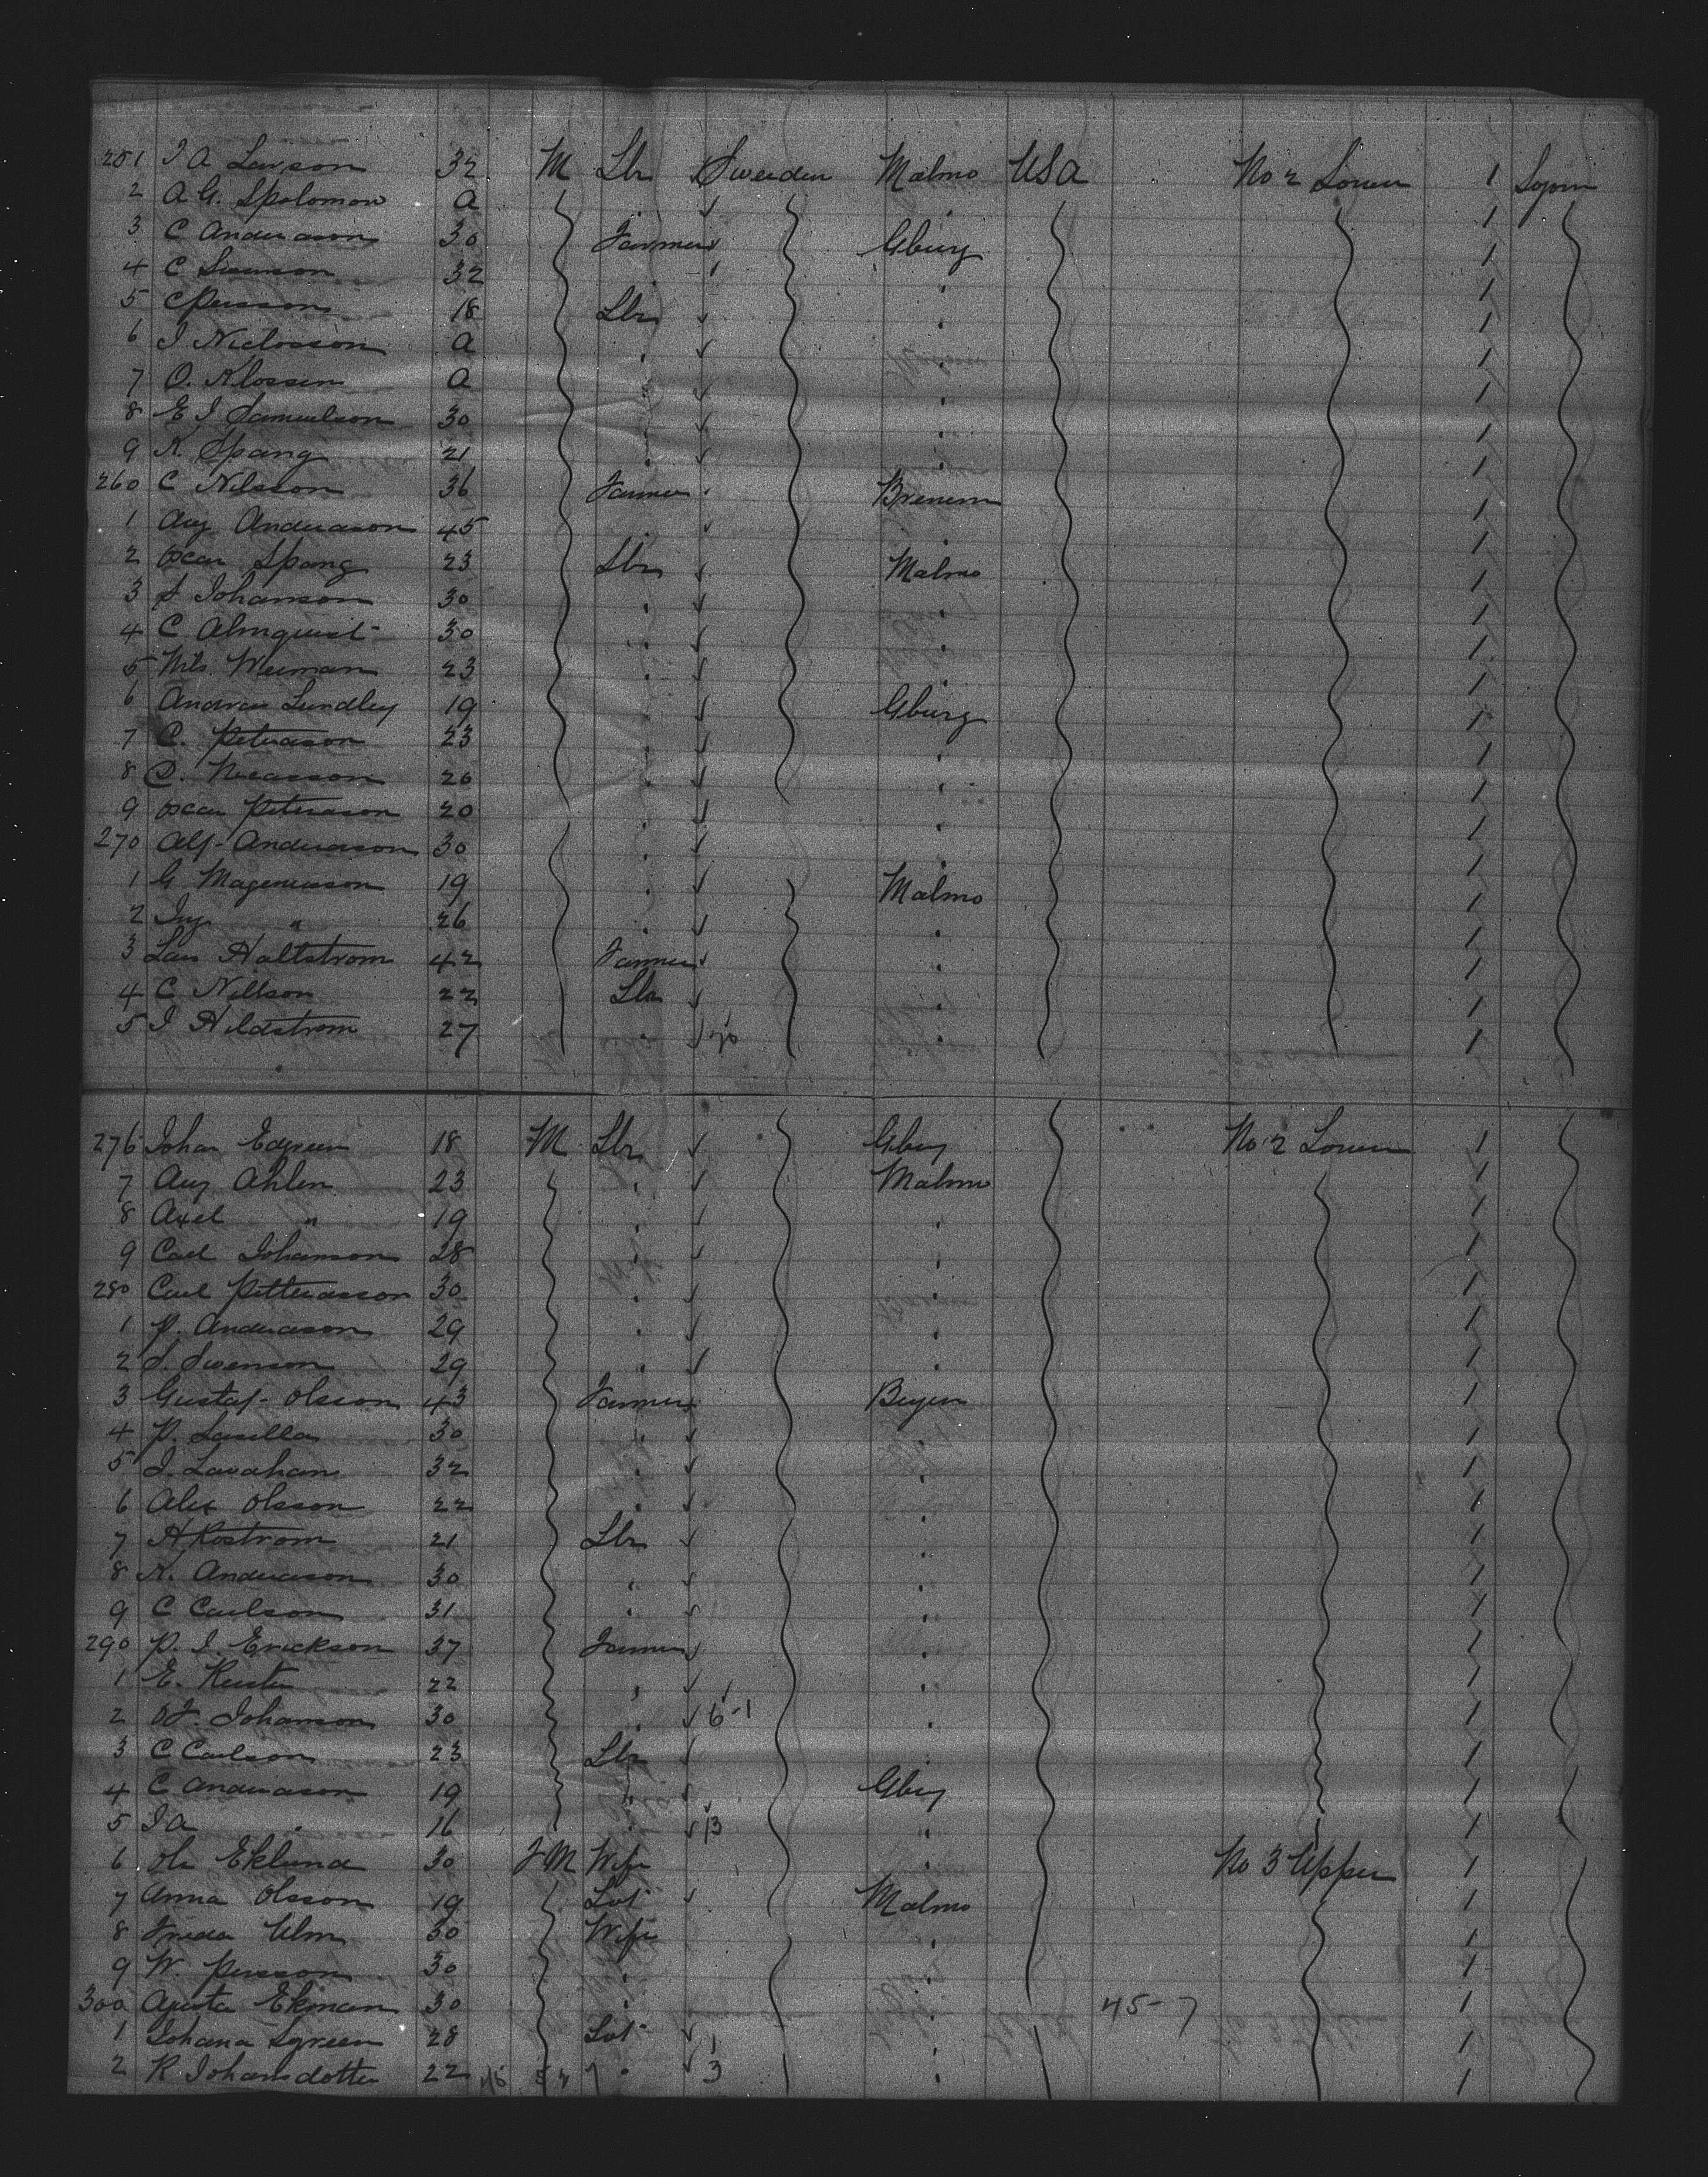 251 I A Larson 32 M Lbr Sweeden Malmo USA No 2 Lower 1 Sojorn
2 A G. Spolomon a 1
3 C Anderason 30 Farmer Gburg 1
4 C Swenson 32 1
5 C Persson 18 Lbr 1
6 I Nielosson a 1
7 O. Klossen a 1
8 E I Samuelson 30 1
9 K Spang 21 1
260 C Nilsson 36 Farmer Brenem 1
1 Aug Anderason 45 1
2 Oscar Spang 23 Lbr Malmo 1
3 S Johanson 30 1
4 C Almquist 30 1
5 Nils Weiman 23 1
6 Andrew Lundley 19 Gburg 1
7 C. Peterason 23 1
8 26 1
9 Oscar Peterason 20 1
270 Alf Anderason 30 1
1 G Magenusson 19 Malmo 1
2 Ing " 26 1
3 Lars Hallstrom 42 Farmer 1
4 C Nillson 22 Lbr 1
5 I Hildstrom 27 1
276 Johan Edgreen 18 M Lbr Gburg No 2 Lower 1
7 Aug Ahlen 23 Malmo 1
8 Axel " 19 1
9 Carl Johanson 28 1
280 Carl Petterasson 30 1
1 P. Anderason 29 1
2 S. Swenson 29 1
3 Gustaf Olsson 43 Farmer 1
4 P. 30 1
5 I. 32 1
6 Alex Olsson 22 1
7 H Rostrom 21 Lbr 1
8 K. Anderason 30 1
9 C Carlson 31 1
290 P. I. Erickson 37 Farmer 1
1 E. 22 1
2 Johanson 30 6-1 1
3 C Carlson 23 Lbr 1
4 C Anderason 19 Gburg 1
5 I A " 16 13 1
6 Eklund 30 F M Wife No 3 Upper 1
7 Anna Olsson 19 Svt Malmo 1
8 Freda Ulm 30 Wife 1
9 W. Persson 30 1
300 Agusta Ekman 30 45-7 1
1 Johana Sgreen 28 Svt 1
2 K Johansdotter 22 3 1